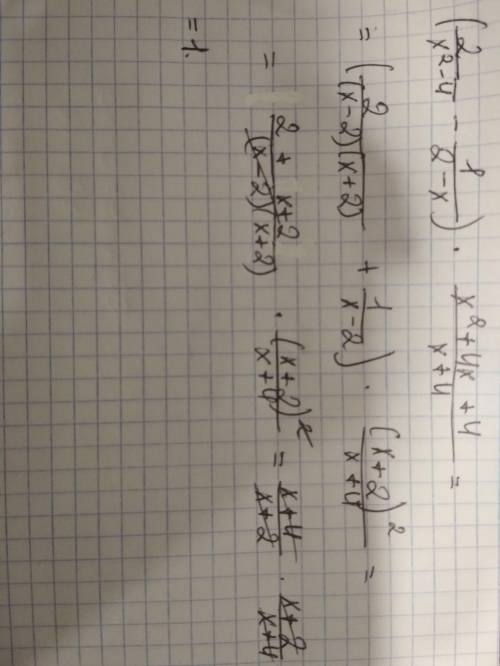 (2/(x²-4) - 1/(2-x)) · (x²+4x+4)/(x+4) =
= (2/((x-2)(x+2)) + 1/(x-2)) · (x+2)²/(x+4) =
= (2 + x+2)/((x-2)(x+2)) · (x+2)²/(x+4) = (x+4)/(x+2) · (x+2)/(x+4)
= 1.